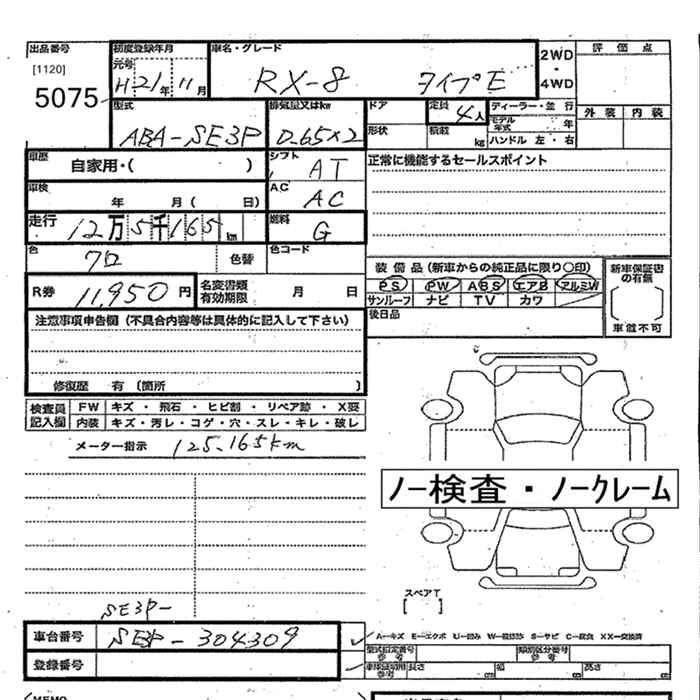 出品番号
[1120]
5075
初度登録年月
元号
H21年11月
車名・グレード
RX-8 タイプE
2WD
・
4WD
評価点
外装 内装
型式
ABA-SE3P
排気量又はkw
0.65×2
ドア
形状
定員
4人
積載
kg
ディーラー・並行
モデル年式 年
ハンドル 左・右
車歴
自家用・( )
シフト
AT
正常に機能するセールスポイント
車検
年 月( 日)
AC
AC
走行
12万5千165km
燃料
G
色
クロ
色替
色コード
装備品(新車からの純正品に限り○印)
PS PW ABS エアB アルミW
サンルーフ ナビ TV カワ
新車保証書の有無
[ ]
車載不可
R券
11,950円
名変書類有効期限
月 日
後日品
注意事項申告欄(不具合内容等は具体的に記入して下さい)
修復歴 有 〔箇所 〕
検査員記入欄
FW キズ・飛石・ヒビ割・リペア跡・X要
内装 キズ・汚レ・コゲ・穴・スレ・キレ・破レ
メーター指示 125.165km
ノー検査・ノークレーム
スペアT
[ ]
SE3P-
車台番号 SE3P-304309
登録番号
A-キズ E-エクボ U-凹み W-板跡 S-サビ C-腐食 XX-交換済
型式指定番号 参考
類別区分番号 参考
車庫証明用 参考 長さ cm 幅 cm 高さ cm
MEMO